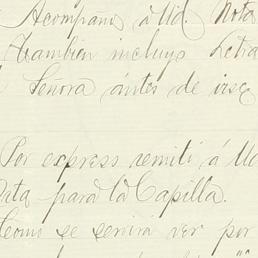 Acompaño á Ud. Nota
también incluyo Letra
Señora ántes de irse
Por express remití á Ud
para la Capilla.
Como se servirá ver por